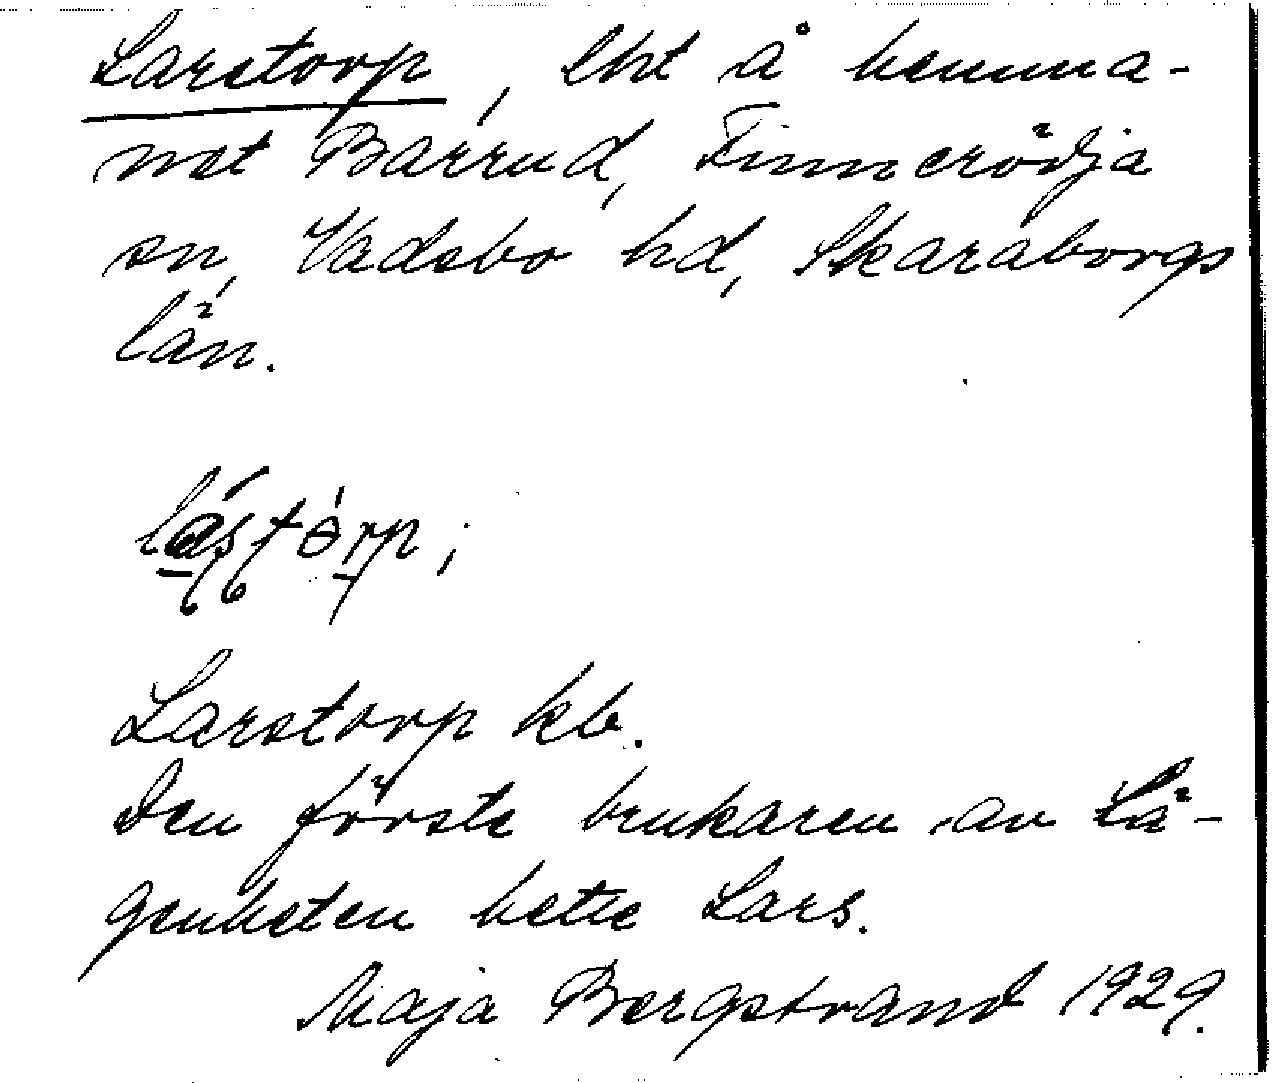 Larstorp, lht å hemma-
net Bårrud, Finnerödja
sn, Vadsbo hd, Skaraborgs
län.
Larstorp kb.
Den förste brukaren av Lä-
genheten hette Lars.
Maja Bergstrand 1929.